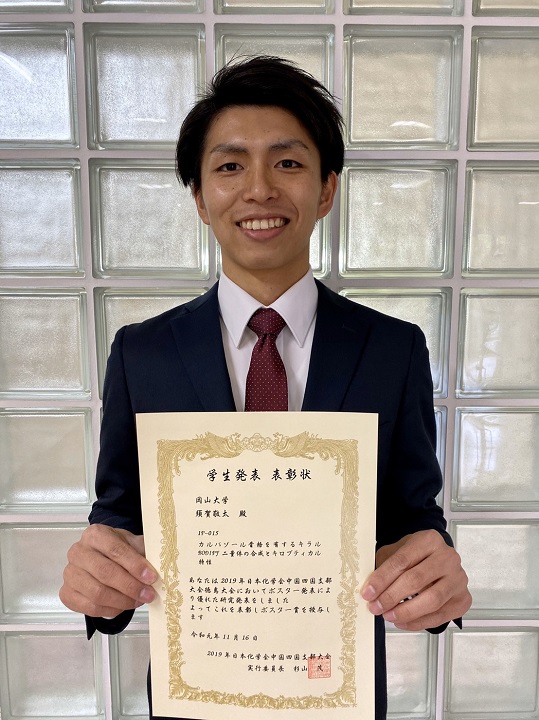 学生発表 表彰状
岡山大学
須賀敬太 殿
1P-015
カルバゾール骨格を有するキラル
BODIPY 二量体の合成とキロプティカル
特性
あなたは2019年日本化学会中国四国支部
大会徳島大会においてポスター発表によ
り優れた研究発表をしました
よってこれを表彰しポスター賞を授与しま
す
令和元年11月16日
2019年日本化学会中国四国支部大会
実行委員長 杉山 茂